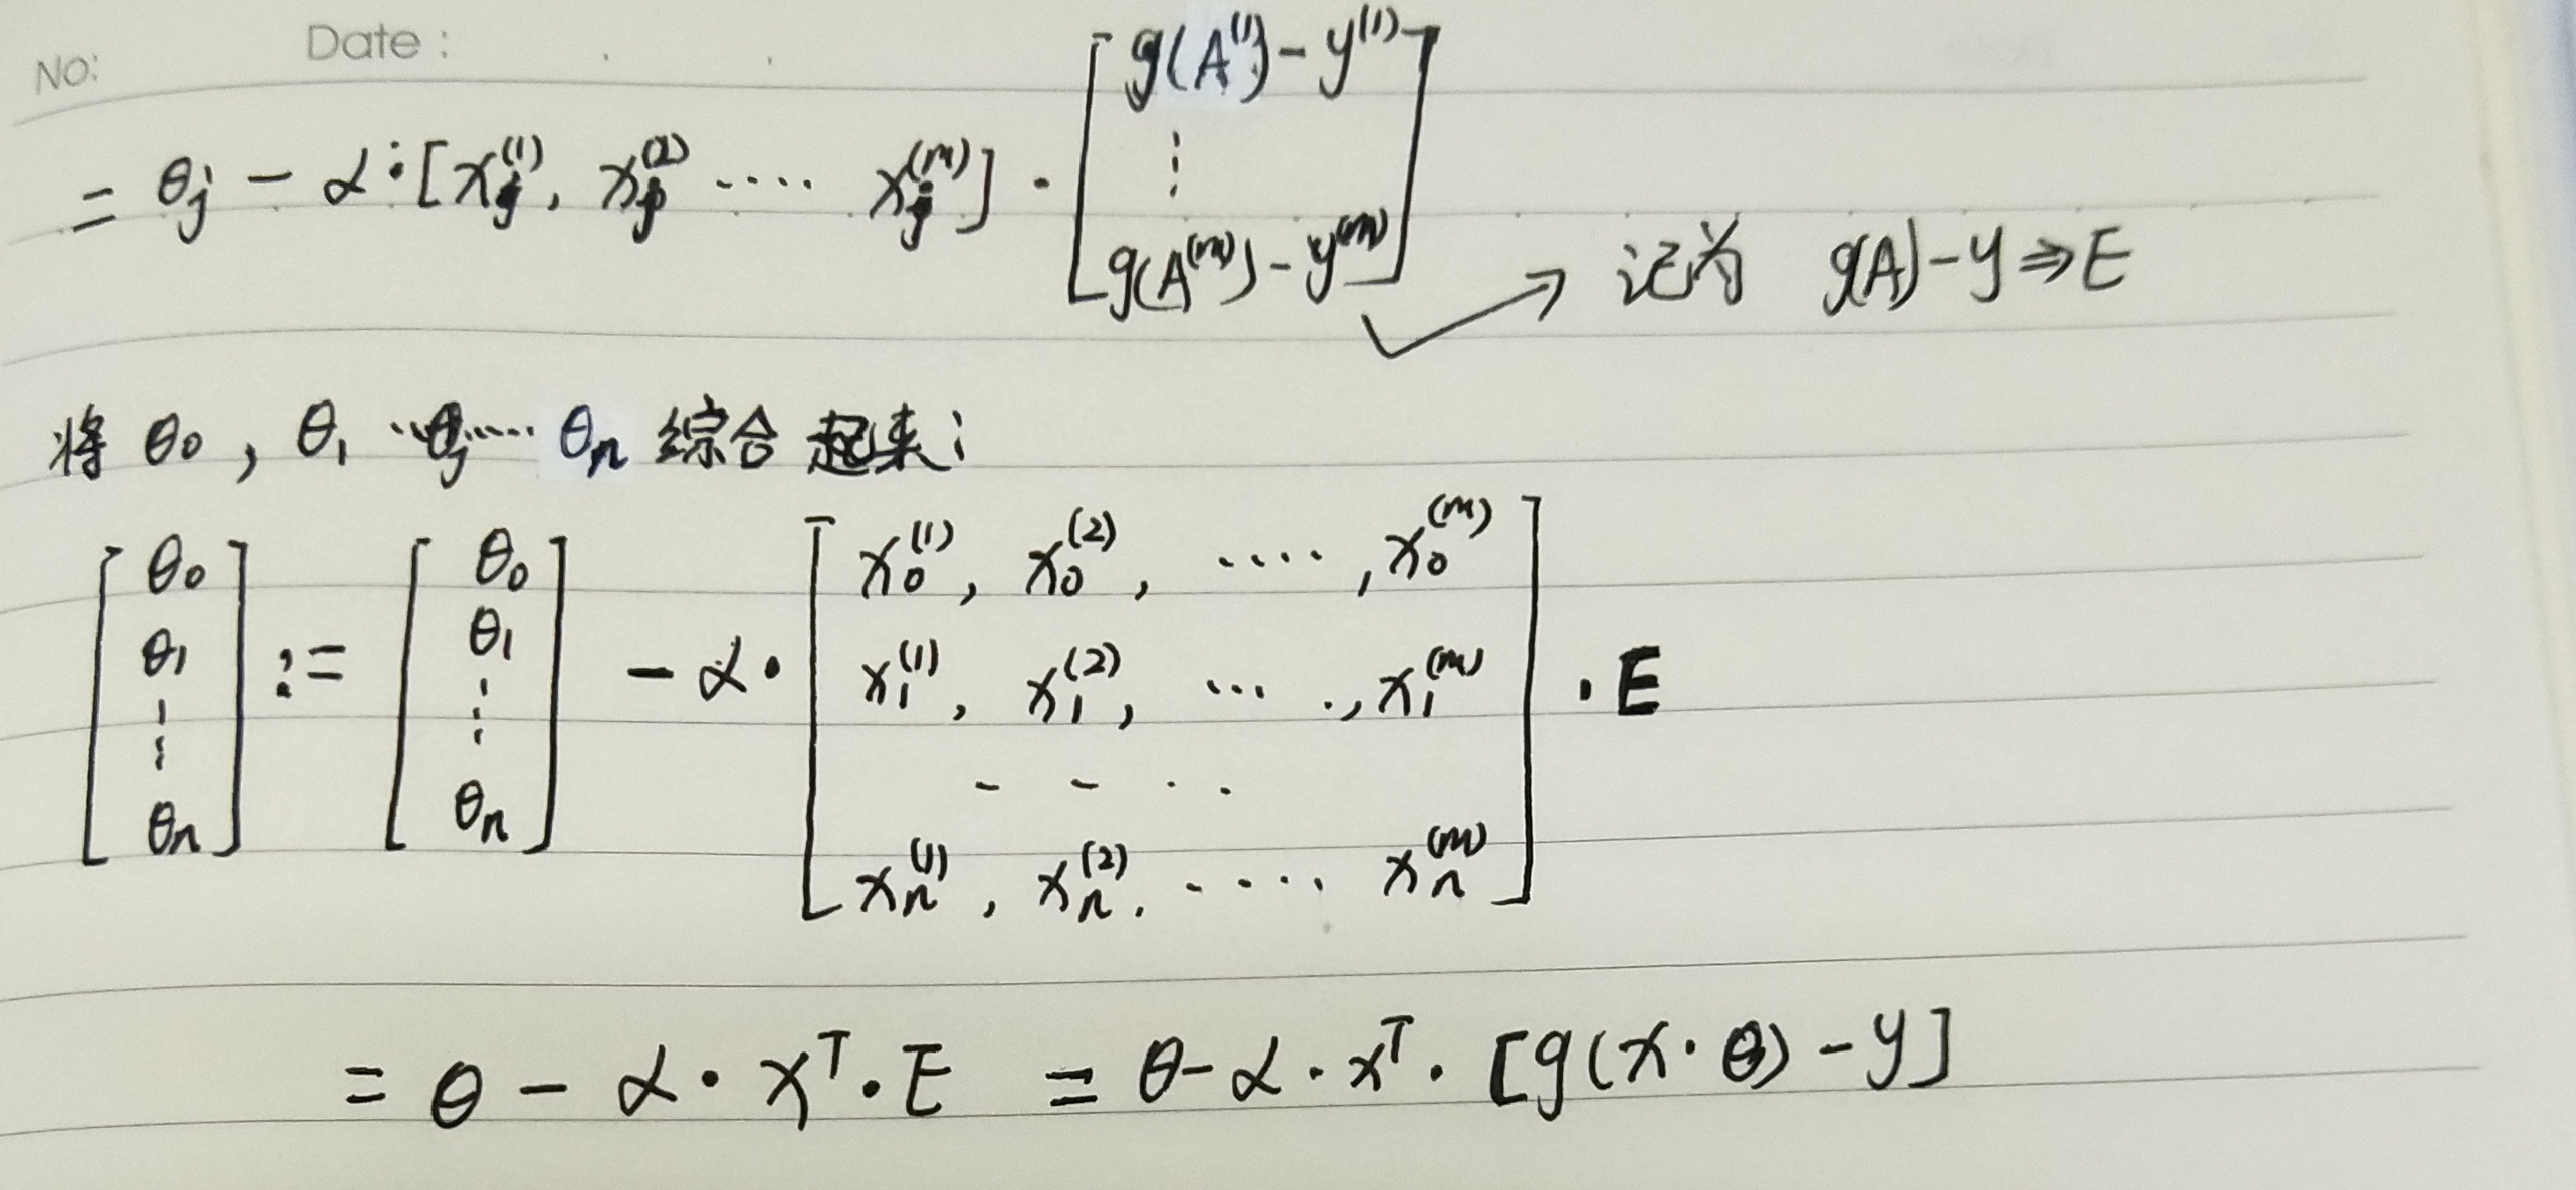 NO: Date:
= θj − α · [xj^(1), xj^(2) ···· xj^(m)] · [g(A^(1)) − y^(1) ⋮ g(A^(m)) − y^(m)]
记为 g(A) − y ⇒ E
将 θ0, θ1 ··· θj ···· θn 综合起来:
[θ0 θ1 ⋮ θn] := [θ0 θ1 ⋮ θn] − α · [x0^(1), x0^(2), ····, x0^(m)
x1^(1), x1^(2), ···., x1^(m)
- - · ·
xn^(1), xn^(2). ····· xn^(m)] · E
= θ − α · x^T · E = θ − α · x^T · [g(x · θ) − y]